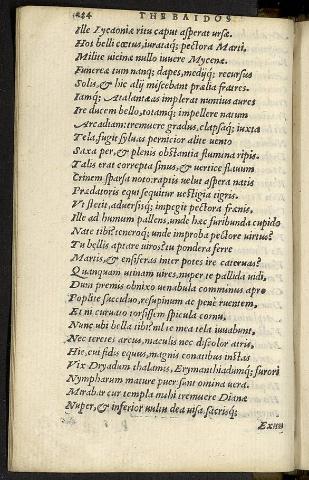 284 THEBAIDOS
Ille Lycaoniæ ritu caput asperat ursæ.
Hos belli cœtus, iurataq; pectora Marti,
Milite uicinæ nullo iuuere Mycenæ.
Funereæ tum nanq; dapes, medijq; recursus
Solis, & hic alij miscebant prælia fratres.
Iamq; Atalantæas implerat nuntius aures
Ire ducem bello, totamq; impellere natum
Arcadiam: tremuere gradus, elapsaq; iuxta
Tela, fugit syluas pernicior alite uento
Saxa per, & plenis obstantia flumina ripis.
Talis erat correpta sinus, & uertice flauum
Crinem sparsa noto: raptis uelut aspera natis
Prædatoris equi sequitur uestigia tigris.
Vt stetit, aduersisq; impegit pectora frænis,
Ille ad humum pallens, unde hæc furibunda cupido
Nate tibi? teneroq; unde improba pectore uirtus?
Tu bellis aptare uiros? tu pondera ferre
Martis, & ensiferas inter potes ire cateruas?
Quanquam utinam uires, nuper te pallida uidi,
Dum premis obnixo uenabula comminus apro
Poplite succiduo, resupinum ac penè ruentem,
Et ni curuato torsissem spicula cornu,
Nunc ubi bella tibi? nil te mea tela iuuabunt,
Nec teretes arcus, maculis nec discolor atris,
Hic, cui fidis equus, magnis conatibus instas
Vix Dryadum thalamis, Erymanthiadumq; furori
Nympharum mature puer: sunt omina uera.
Mirabar cur templa mihi tremuere Dianæ
Nuper, & inferior uultu dea uisa, sacrisq;